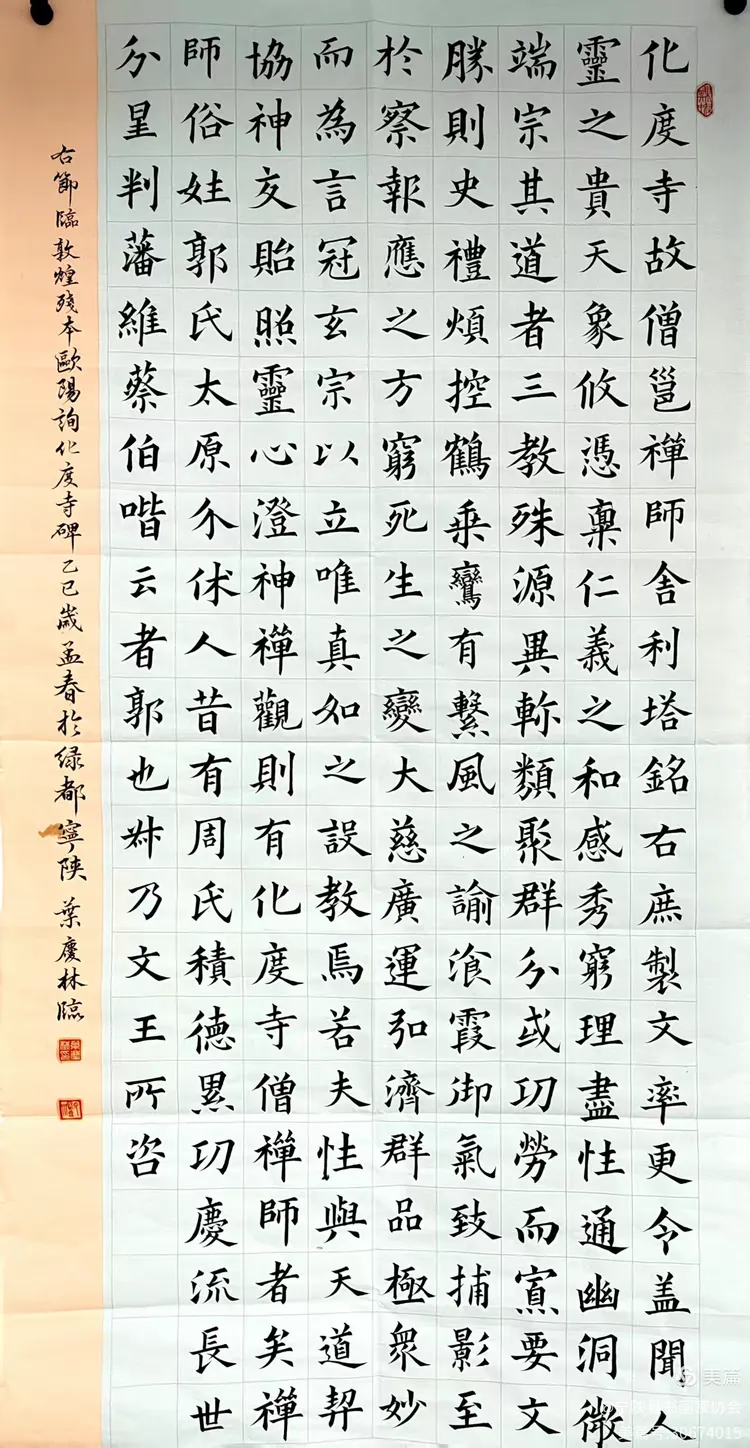 化度寺故僧邕禪師舍利塔銘右庶製文率更令盖聞人
靈之貴天象攸憑稟仁義之和感秀窮理盡性通幽洞微
端宗其道者三教殊源異軫類聚群分或功勞而寡要文
勝則史禮煩控鶴乘鸞有繫風之諭飡霞御氣致捕影至
於察報應之方窮死生之變大慈廣運弘濟群品極衆妙
而為言冠玄宗以立唯真如之設教焉若夫性與天道契
協神交貽照靈心澄神禪觀則有化度寺僧禪師者矣禪
師俗姓郭氏太原介休人昔有周氏積德累功慶流長世
分星判藩維蔡伯喈云者郭也叔乃文王所咨
右節臨敦煌殘本歐陽詢化度寺碑乙巳歲孟春於绿都寧陝 葉慶林臨
美篇